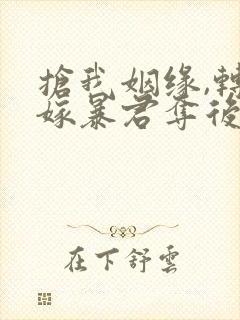 搶我姻緣,轉
嫁暴君奪後
在下舒雲